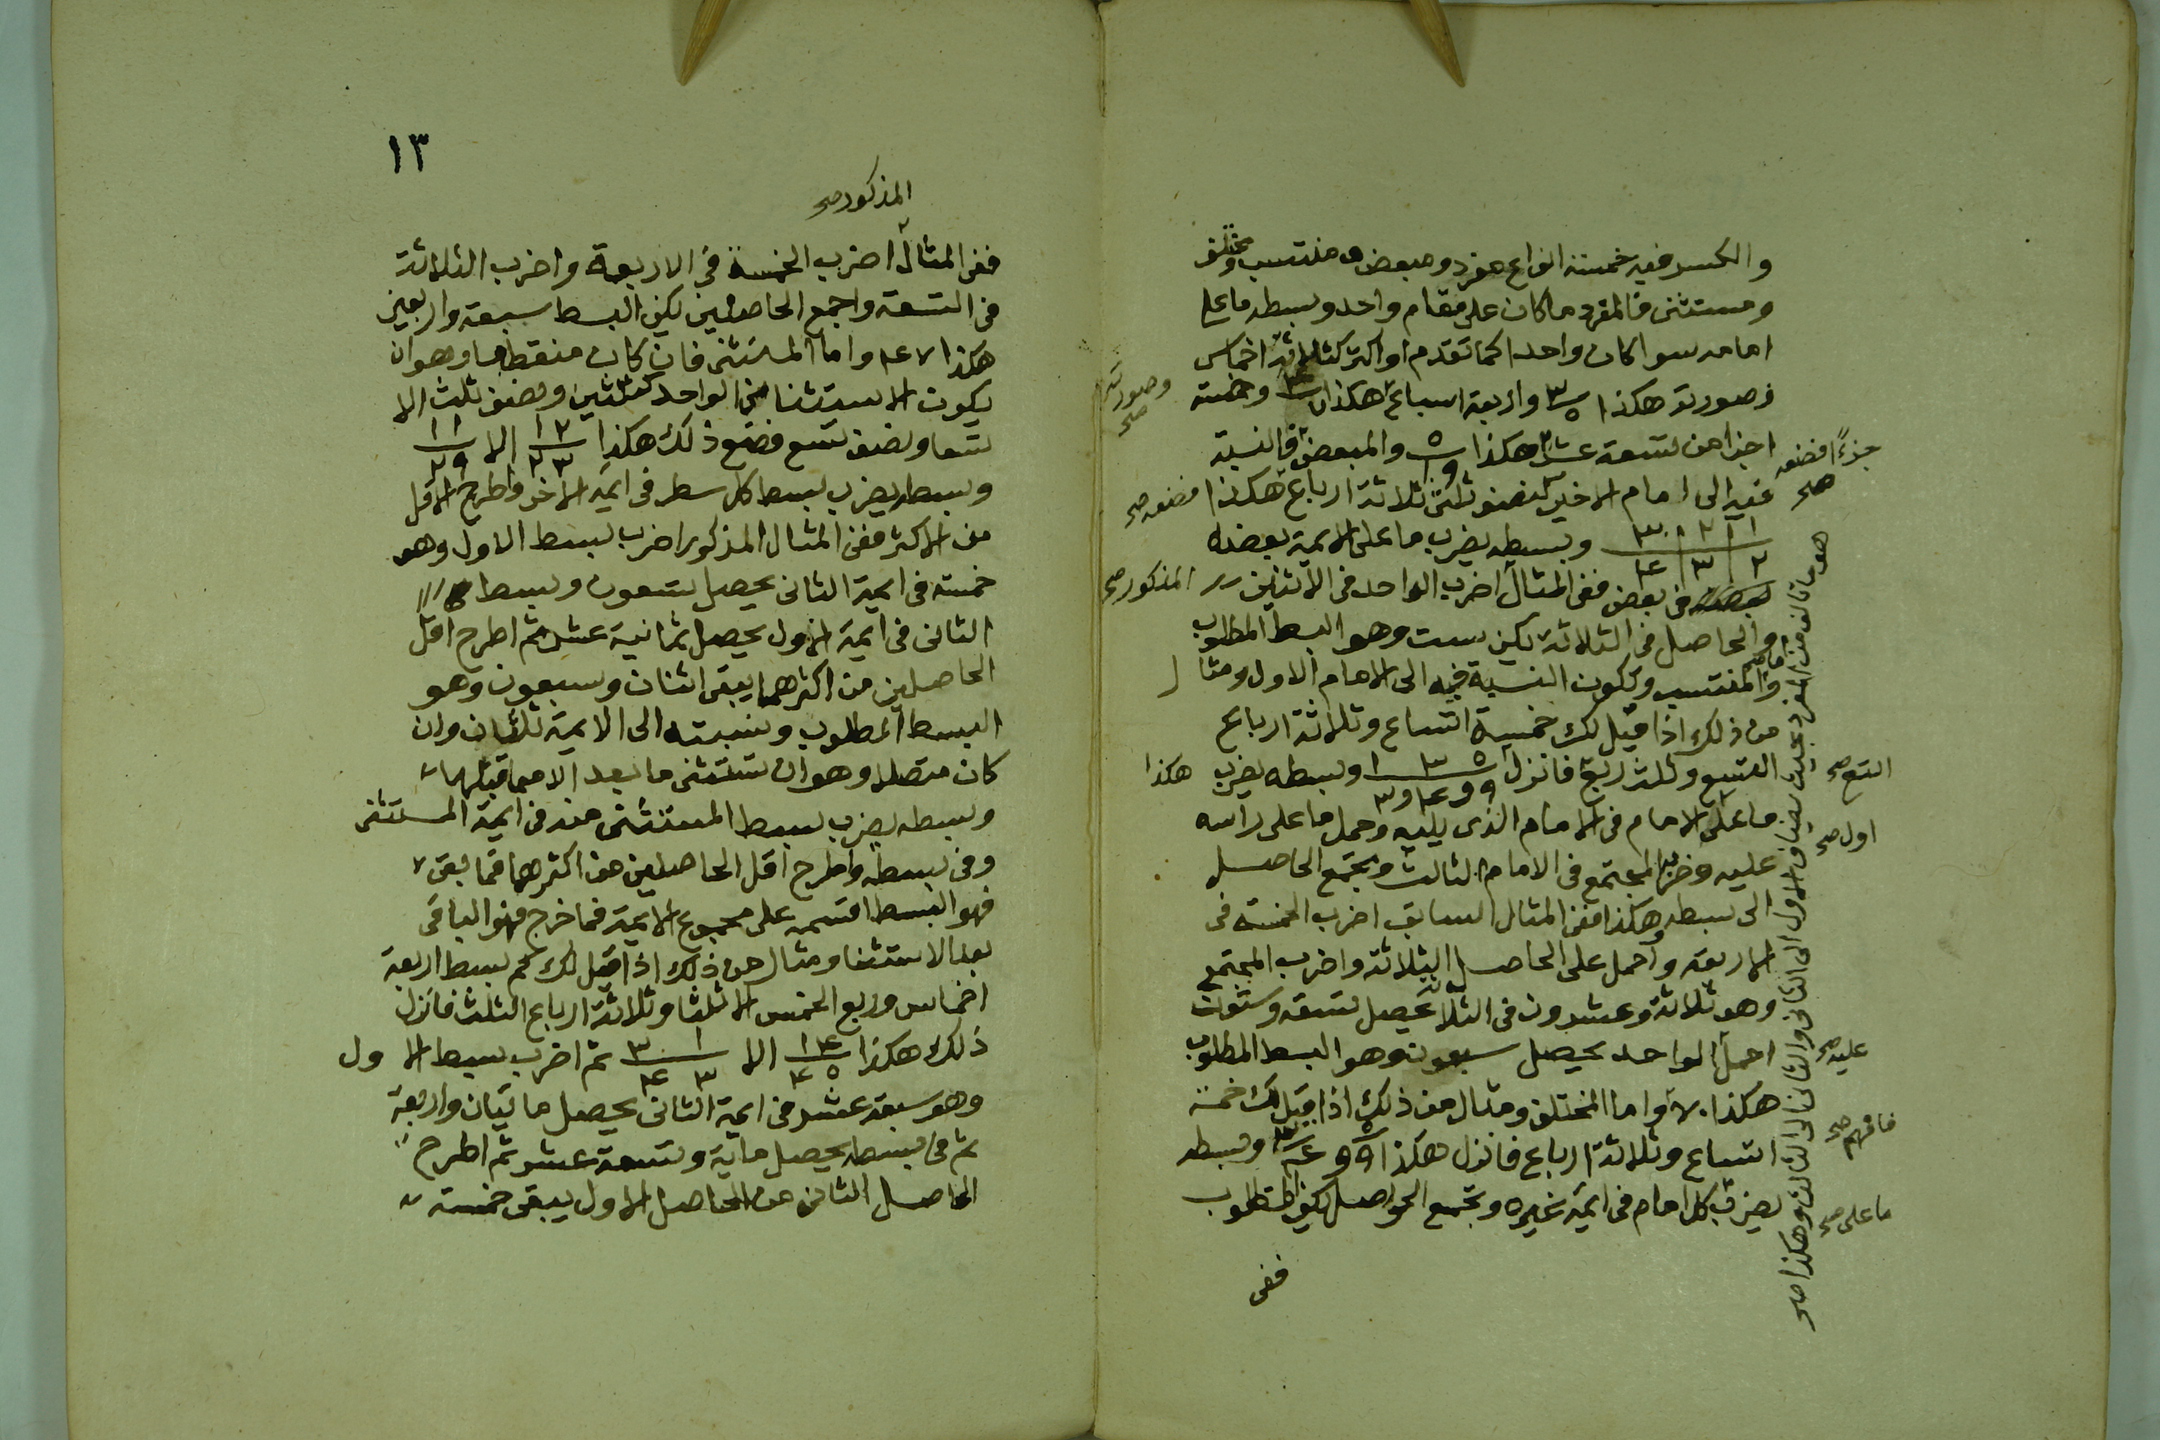 والكسر فيه خمسة انواع مفرد ومبعض ومنتسب ومختلف
ومستثنى فالمفرد ما كان على مقام واحد وبسطه ما على
امامه سوا كان واحدا كما تقدم او اكثر كثلاثة اخماس
فصورته هكذا ٣ ٥ واربعة اسباع هكذا وخمسة
وصورته صح
اجزا من تسعة عشر هكذا والمبعض فالنسبة
جزءًا فضعه صح
فيه الى امام الاخير كنصف ثلثى ثلاثة ارباع هكذا
فضعه صح
١ ٢ ٣ وبسطه يضرب ما على الايمة بعضه
٢ ٣ ٤
فى بعض ففى المثال اضرب الواحد فى الاثنين
المذكور صح
والحاصل فى الثلاثة يكن ست وهو البسط المطلوب
واما المنتسب وتكون النسبة فيه الى الامام الاول ومثال
من ذلك اذا قيل لك خمسة اتساع وثلاثة ارباع
التسع وثلث ربع فانزل ٥ ٣ ١ وبسطه يضرب هكذا
التسع صح
٩ و ٤ و ٣
ما على الامام فى الامام الذى يليه وحمل ما على راسه
اول صح
عليه وضرب المجتمع فى الامام الثالث ويجمع الحاصل
الى بسطه وهكذا ففى المثال السابق اضرب الخمسة فى
الاربعة واحمل على الحاصل الثلاثة واضرب المجتمع
وهو ثلاثة وعشرون فى الثلاثة يحصل تسعة وستون
احمل الواحد يحصل سبعون وهو البسط المطلوب
عليه صح
هكذا ٧٠ واما المختلف ومثال من ذلك اذا قيل لك خمسة
فافهم صح
اتساع وثلاثة ارباع فانزل هكذا وبسطه
يضرب كل امام فى ايمة غيره وتجمع الحواصل يكن المطلوب
ما على صح
ففى
هو ما تالف من المفرد بحيث يضاف الاول الى الثانى والثانى الى الثالث وهكذا صح
١٣
المذكور صح
ففى المثال اضرب الخمسة فى الاربعة واضرب الثلاثة
فى التسعة واجمع الحاصلين يكن البسط سبعة واربعين
هكذا ٤٧ واما المستثنى فان كان منقطعا وهو ان
يكون الاستثنا من الواحد كثلثين ونصف ثلث الا
تسعا ونصف تسع فضع ذلك هكذا ١ ٢ الا ١ ١
٢ ٣ ٢ ٩
وبسطه يضرب بسط كل سطر فى ايمة الاخر واطرح الاقل
من الاكثر ففى المثال المذكور اضرب بسط الاول وهو
خمسة فى ايمة الثانى يحصل تسعون وبسط
الثانى فى ايمة الاول يحصل ثمانية عشر ثم اطرح اقل
الحاصلين من اكثرهما يبقى اثنان وسبعون وهو
البسط المطلوب ونسبته الى الايمة ثلثان وان
كان متصلا وهو ان تستثنى ما بعد الا مما قبلها
وبسطه يضرب بسط المستثنى منه فى ايمة المستثنى
وفى بسطه واطرح اقل الحاصلين من اكثرهما فما بقى
فهو البسط اقسمه على مجموع الايمة فما خرج فهو الباقى
بعد الاستثنا ومثال من ذلك اذا قيل لك كم بسط اربعة
اخماس وربع الخمس الا ثلثا وثلاثة ارباع الثلث فانزل
ذلك هكذا ١ ٤ الا ٣ ١ ثم اضرب بسط الاول
٤ ٥ ٤ ٣
وهو سبعة عشر فى ايمة الثانى يحصل مايتان واربعة
ثم فى بسطه يحصل ماية وتسعة عشر ثم اطرح
الحاصل الثانى من الحاصل الاول يبقى خمسة